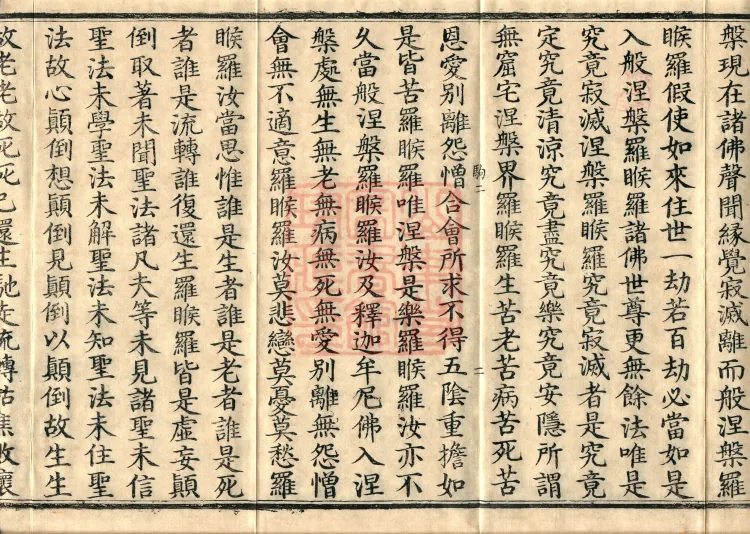 槃現在諸佛聲聞緣覺寂滅離而般涅槃羅
睺羅假使如來住世一劫若百劫必當如是
入般涅槃羅睺羅諸佛世尊更無餘法唯是
究竟寂滅涅槃羅睺羅究竟寂滅者是究竟
定究竟清涼究竟盡究竟樂究竟安隱所謂
無窟宅涅槃界羅睺羅生苦老苦病苦死苦
恩愛別離怨憎合會所求不得五陰重擔如
是皆苦羅睺羅唯涅槃是樂羅睺羅汝亦不
久當般涅槃羅睺羅汝及釋迦牟尼佛入涅
槃處無生無老無病無死無愛別離無怨憎
會無不適意羅睺羅汝莫悲戀莫憂莫愁羅
睺羅汝當思惟誰是生者誰是老者誰是死
者誰是流轉誰復還生羅睺羅皆是虛妄顛
倒取著未聞聖法諸凡夫等未見諸聖未信
聖法未學聖法未解聖法未知聖法未住聖
法故心顛倒想顛倒見顛倒以顛倒故生生
故老老故死死已還生馳走流轉苦焦敗壞